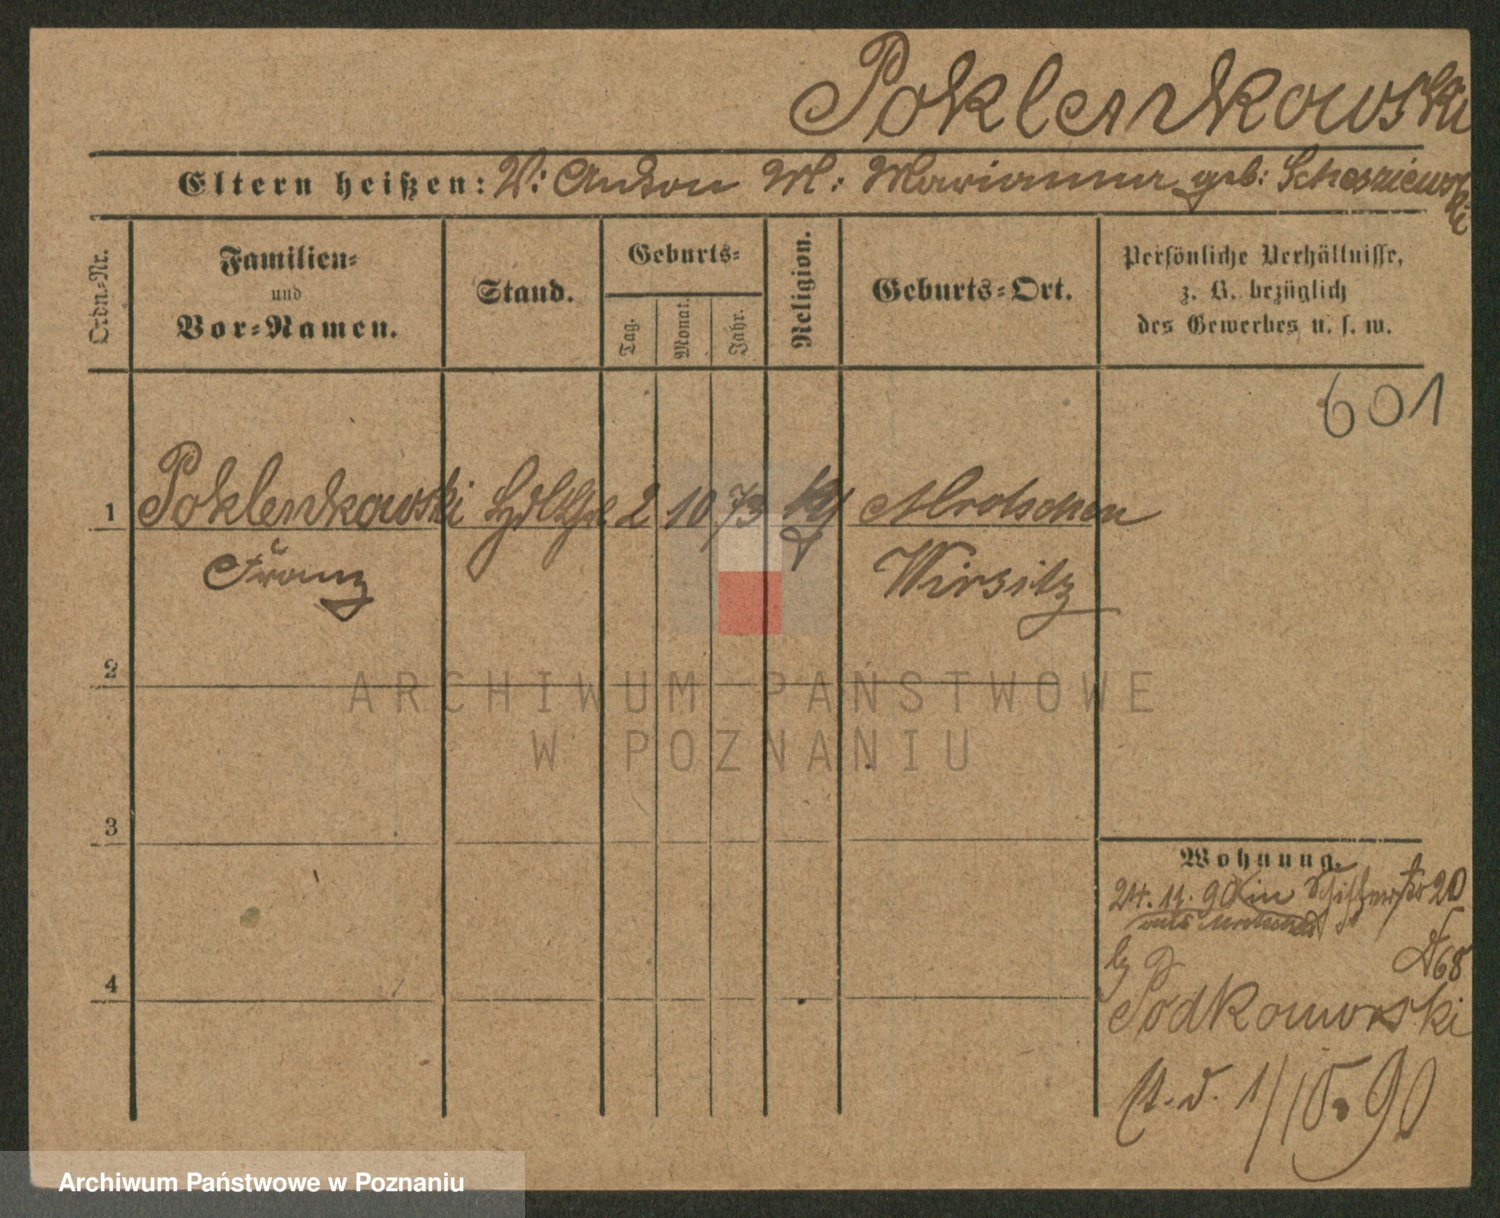 Poklenkowski
Eltern heißen: V: Anton M: Marianna geb:
Ordn.-Nr.
Familien-
und
Vor-Namen.
Stand.
Geburts-
Tag.
Monat.
Jahr.
Religion.
Geburts-Ort.
Persönliche Verhältnisse,
z. B. bezüglich
des Gewerbes u. s. w.
601
1 Poklenkowski 2 10 73 Mrotschen
Franz Wirsitz
2
ARCHIWUM PAŃSTWOWE
W POZNANIU
3
Wohnung.
24. 11. 90 in 20
68
4
Podkomorski
1/10. 90
Archiwum Państwowe w Poznaniu